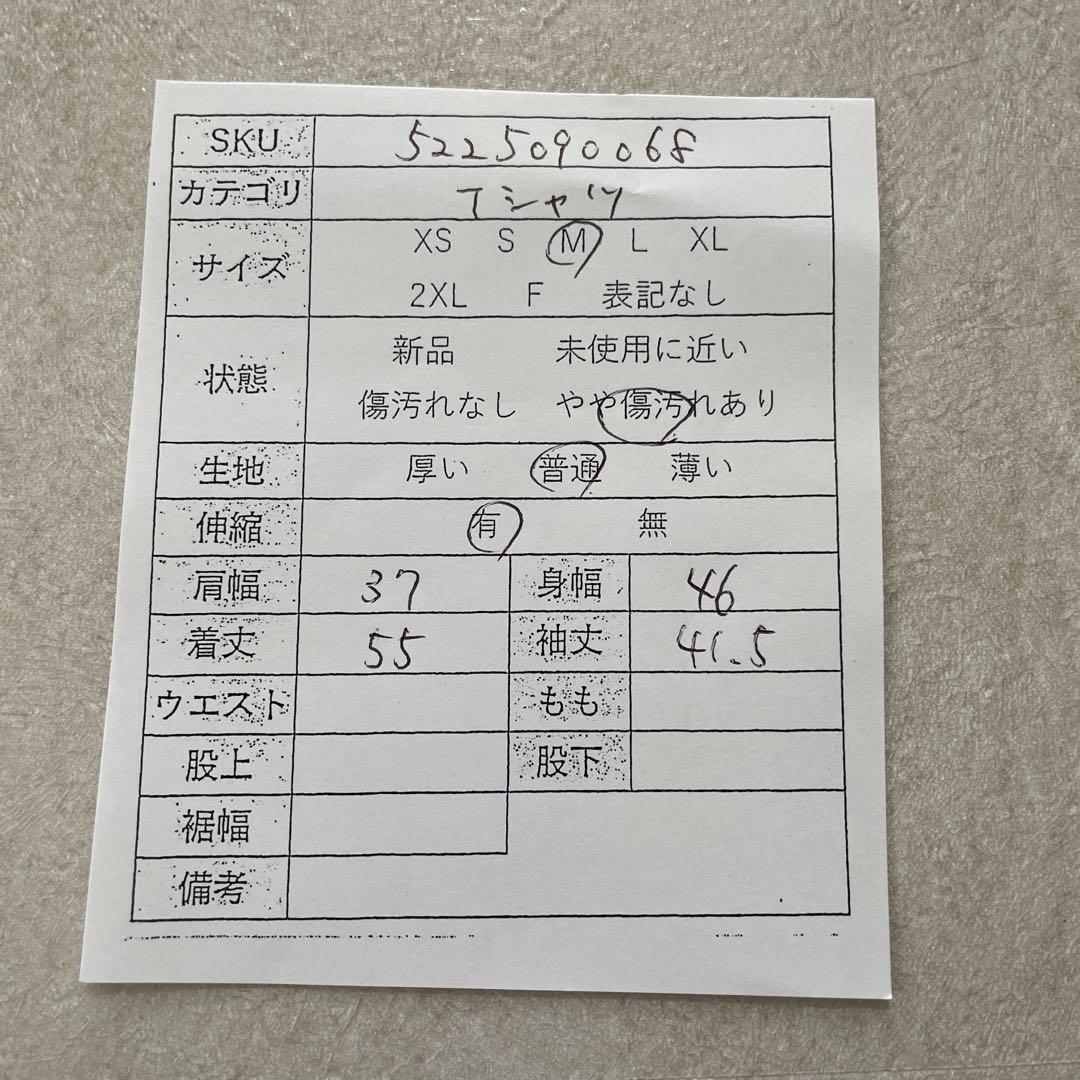 SKU 5225090068
カテゴリ Tシャツ
サイズ XS S M L XL
2XL F 表記なし
状態 新品 未使用に近い
傷汚れなし やや傷汚れあり
生地 厚い 普通 薄い
伸縮 有 無
肩幅 37 身幅 46
着丈 55 袖丈 41.5
ウエスト もも
股上 股下
裾幅
備考